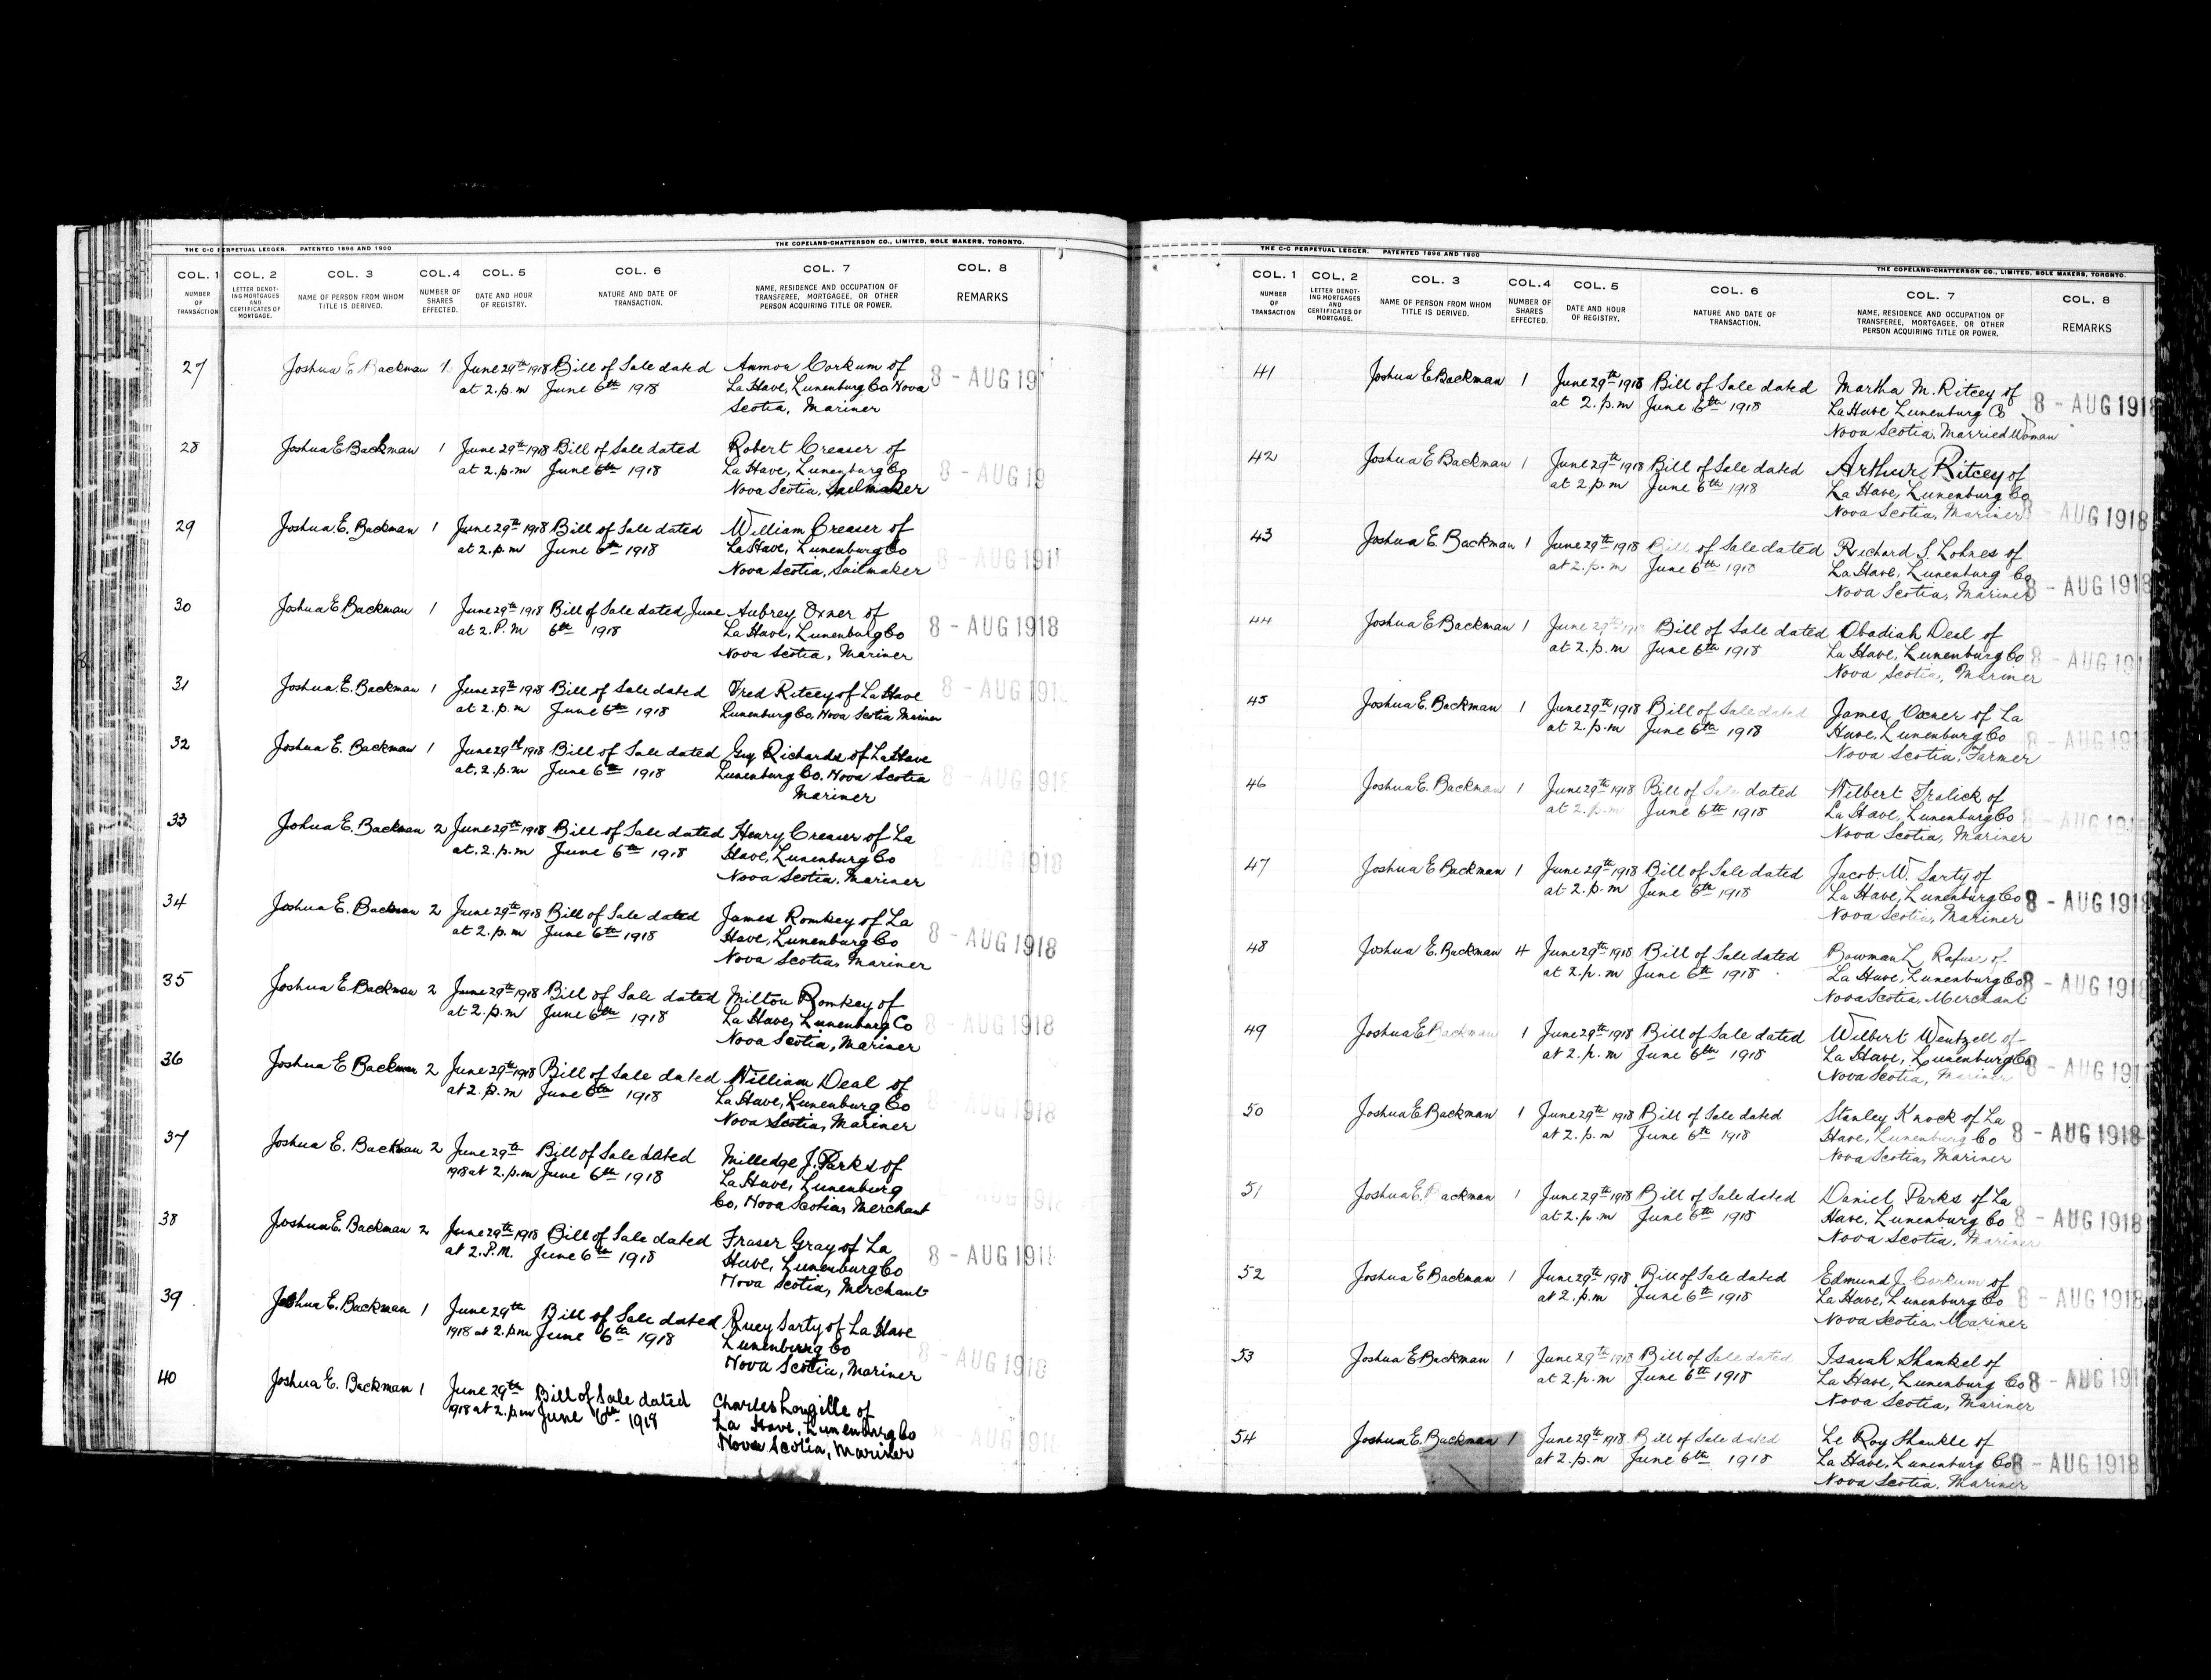 THE C-C PERPETUAL LEDGER. PATENTED 1896 AND 1900 THE COPELAND-CHATTERSON CO., LIMITED, SOLE MAKERS, TORONTO.
COL. 1 COL. 2 COL. 3 COL. 4 COL. 5 COL. 6 COL. 7 COL. 8
NUMBER OF TRANSACTION LETTER DENOTING MORTGAGES AND CERTIFICATES OF MORTGAGE. NAME OF PERSON FROM WHOM TITLE IS DERIVED. NUMBER OF SHARES EFFECTED. DATE AND HOUR OF REGISTRY. NATURE AND DATE OF TRANSACTION. NAME, RESIDENCE AND OCCUPATION OF TRANSFEREE, MORTGAGEE, OR OTHER PERSON ACQUIRING TITLE OR POWER. REMARKS
27 Joshua E Backman 1 June 29th 1918 Bill of Sale dated Corkum of
at 2.p.m June 6th 1918 La Have, Lunenburg Co Nova 8 - AUG 19
Scotia, Mariner
28 Joshua E Backman 1 June 29th 1918 Bill of Sale dated Robert Creaser of
at 2.p.m June 6th 1918 La Have, Lunenburg Co 8 - AUG 19
Nova Scotia, Sailmaker
29 Joshua E. Backman 1 June 29th 1918 Bill of Sale dated William Creaser of
at 2.p.m June 6th 1918 La Have, Lunenburg Co 8 - AUG 191
Nova Scotia, Sailmaker
30 Joshua E Backman 1 June 29th 1918 Bill of Sale dated June Aubrey Oxner of
at 2.P.M 6th 1918 La Have, Lunenburg Co 8 - AUG 1918
Nova Scotia, Mariner
31 Joshua E. Backman 1 June 29th 1918 Bill of Sale dated Fred Ritcey of La Have 8 - AUG 191
at 2.p.m June 6th 1918 Lunenburg Co, Nova Scotia Mariner
32 Joshua E. Backman 1 June 29th 1918 Bill of Sale dated Guy Richards of La Have
at 2.p.m June 6th 1918 Lunenburg Co. Nova Scotia 8 - AUG 1918
Mariner
33 Joshua E. Backman 2 June 29th 1918 Bill of Sale dated Henry Creaser of La
at 2.p.m June 6th 1918 Have, Lunenburg Co 1918
Nova Scotia, Mariner
34 Joshua E. Backman 2 June 29th 1918 Bill of Sale dated James Romkey of La
at 2.p.m June 6th 1918 Have, Lunenburg Co 8 - AUG 1918
Nova Scotia, Mariner
35 Joshua E Backman 2 June 29th 1918 Bill of Sale dated Milton Romkey of
at 2.p.m June 6th 1918 La Have, Lunenburg Co 8 - AUG 1918
Nova Scotia, Mariner
36 Joshua E Backman 2 June 29th 1918 Bill of Sale dated William Deal of
at 2.P.m June 6th 1918 La Have, Lunenburg Co 8 - AUG 1918
Nova Scotia, Mariner
37 Joshua E. Backman 2 June 29th Bill of Sale dated Milledge J. Parks of
1918 at 2.p.m June 6th 1918 La Have, Lunenburg
Co, Nova Scotia, Merchant
38 Joshua E. Backman 2 June 29th 1918 Bill of Sale dated Fraser Gray of La
at 2.P.M. June 6th 1918 Have, Lunenburg Co 8 - AUG 1918
Nova Scotia, Merchant
39 Joshua E. Backman 1 June 29th Bill of Sale dated Sarty of La Have
1918 at 2.p.m June 6th 1918 Lunenburg Co 8 - AUG 1918
Nova Scotia, Mariner
40 Joshua E. Backman 1 June 29th Bill of Sale dated Charles of
1918 at 2.p.m June 6th 1918 La Have, Lunenburg Co
Nova Scotia, Mariner
THE C-C PERPETUAL LEDGER. PATENTED 1896 AND 1900 THE COPELAND-CHATTERSON CO., LIMITED, SOLE MAKERS, TORONTO.
COL. 1 COL. 2 COL. 3 COL. 4 COL. 5 COL. 6 COL. 7 COL. 8
NUMBER OF TRANSACTION LETTER DENOTING MORTGAGES AND CERTIFICATES OF MORTGAGE. NAME OF PERSON FROM WHOM TITLE IS DERIVED. NUMBER OF SHARES EFFECTED. DATE AND HOUR OF REGISTRY. NATURE AND DATE OF TRANSACTION. NAME, RESIDENCE AND OCCUPATION OF TRANSFEREE, MORTGAGEE, OR OTHER PERSON ACQUIRING TITLE OR POWER. REMARKS
41 Joshua E Backman 1 June 29th 1918 Bill of Sale dated Martha M. Ritcey of
at 2.p.m June 6th 1918 La Have Lunenburg Co 8 - AUG 1918
Nova Scotia, Married Woman
42 Joshua E Backman 1 June 29th 1918 Bill of Sale dated Arthur Ritcey of
at 2.p.m June 6th 1918 La Have, Lunenburg Co
Nova Scotia, Mariner 8 - AUG 1918
43 Joshua E. Backman 1 June 29th 1918 Bill of Sale dated Richard S. Lohnes of
at 2.p.m June 6th 1918 La Have, Lunenburg Co
Nova Scotia, Mariner 8 - AUG 1918
44 Joshua E Backman 1 June 29th 1918 Bill of Sale dated Obadiah Deal of
at 2.p.m June 6th 1918 La Have, Lunenburg Co 8 - AUG 191
Nova Scotia, Mariner
45 Joshua E. Backman 1 June 29th 1918 Bill of Sale dated James Oxner of La
at 2.p.m June 6th 1918 Have, Lunenburg Co 8 - AUG 1918
Nova Scotia, Farmer
46 Joshua E. Backman 1 June 29th 1918 Bill of Sale dated Wilbert Fralick of
at 2.p.m June 6th 1918 La Have, Lunenburg Co 8 - AUG 191
Nova Scotia, Mariner
47 Joshua E Backman 1 June 29th 1918 Bill of Sale dated Jacob. W. Sarty of
at 2.p.m June 6th 1918 La Have, Lunenburg Co 8 - AUG 1918
Nova Scotia, Mariner
48 Joshua E. Backman 4 June 29th 1918 Bill of Sale dated Bowman L Rafuse of
at 2.p.m June 6th 1918 La Have, Lunenburg Co 8 - AUG 1918
Nova Scotia, Merchant
49 Joshua E Backman 1 June 29th 1918 Bill of Sale dated Wilbert Wentzell of
at 2.p.m June 6th 1918 La Have, Lunenburg Co 8 - AUG 191
Nova Scotia, Mariner
50 Joshua E Backman 1 June 29th 1918 Bill of Sale dated Stanley Knock of La
at 2.p.m June 6th 1918 Have, Lunenburg Co 8 - AUG 1918
Nova Scotia, Mariner
51 Joshua E. Backman 1 June 29th 1918 Bill of Sale dated Daniel Parks of La
at 2.p.m June 6th 1918 Have, Lunenburg Co 8 - AUG 1918
Nova Scotia, Mariner
52 Joshua E Backman 1 June 29th 1918 Bill of Sale dated Edmund J. Corkum of
at 2.p.m June 6th 1918 La Have, Lunenburg Co 8 - AUG 1918
Nova Scotia. Mariner
53 Joshua E Backman 1 June 29th 1918 Bill of Sale dated Isaiah Shankel of
at 2.p.m June 6th 1918 La Have, Lunenburg Co 8 - AUG 191
Nova Scotia, Mariner
54 Joshua E. Backman 1 June 29th 1918 Bill of Sale dated Le Roy Shankle of
at 2.p.m June 6th 1918 La Have, Lunenburg Co 8 - AUG 1918
Nova Scotia, Mariner